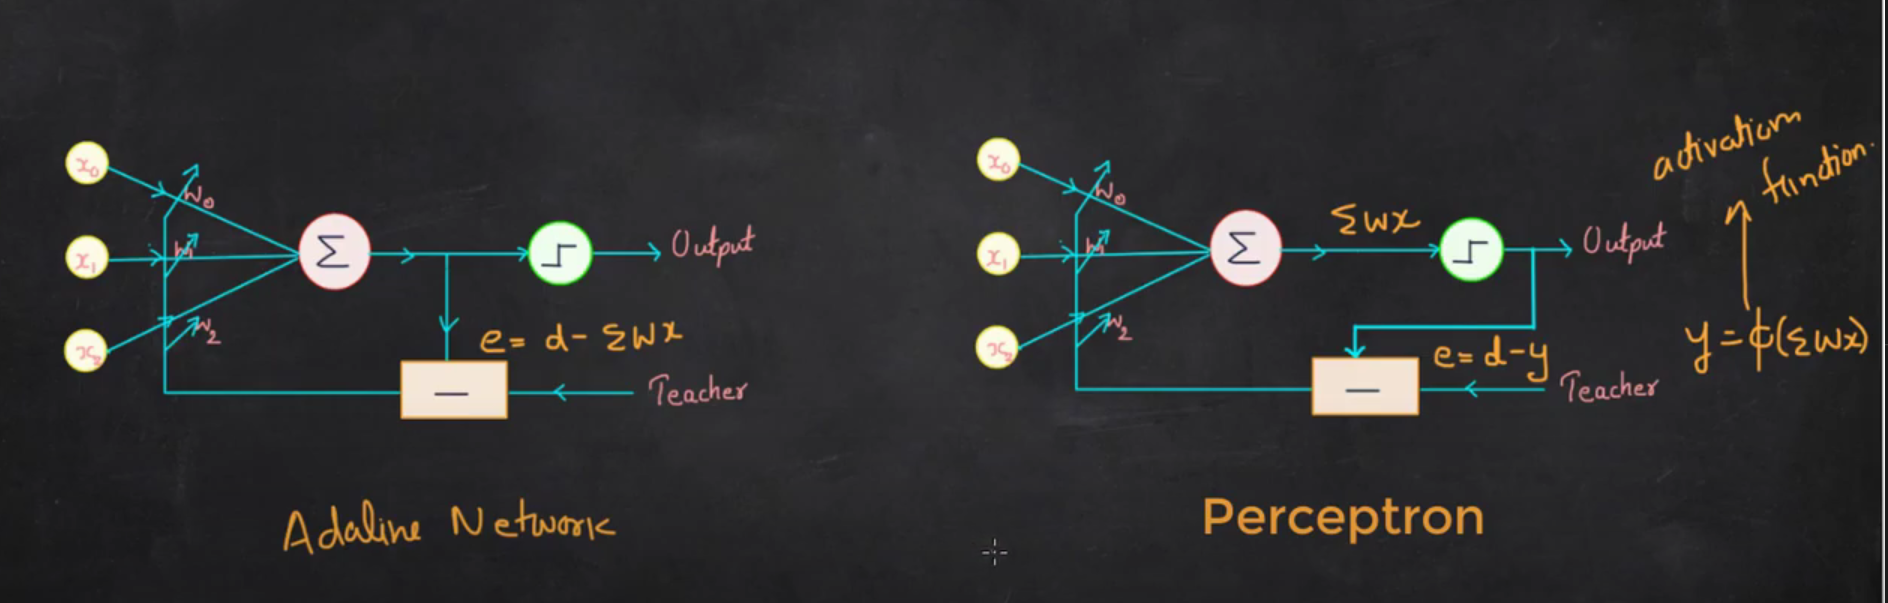 x₀
W₀
x₁
W₁
x₂
W₂
Σ
Output
e = d - ΣWx
—
Teacher
Adaline Network
x₀
W₀
x₁
W₁
x₂
W₂
Σ
Σwx
Output
e = d-y
—
Teacher
activation
function.
y = ϕ(Σwx)
Perceptron